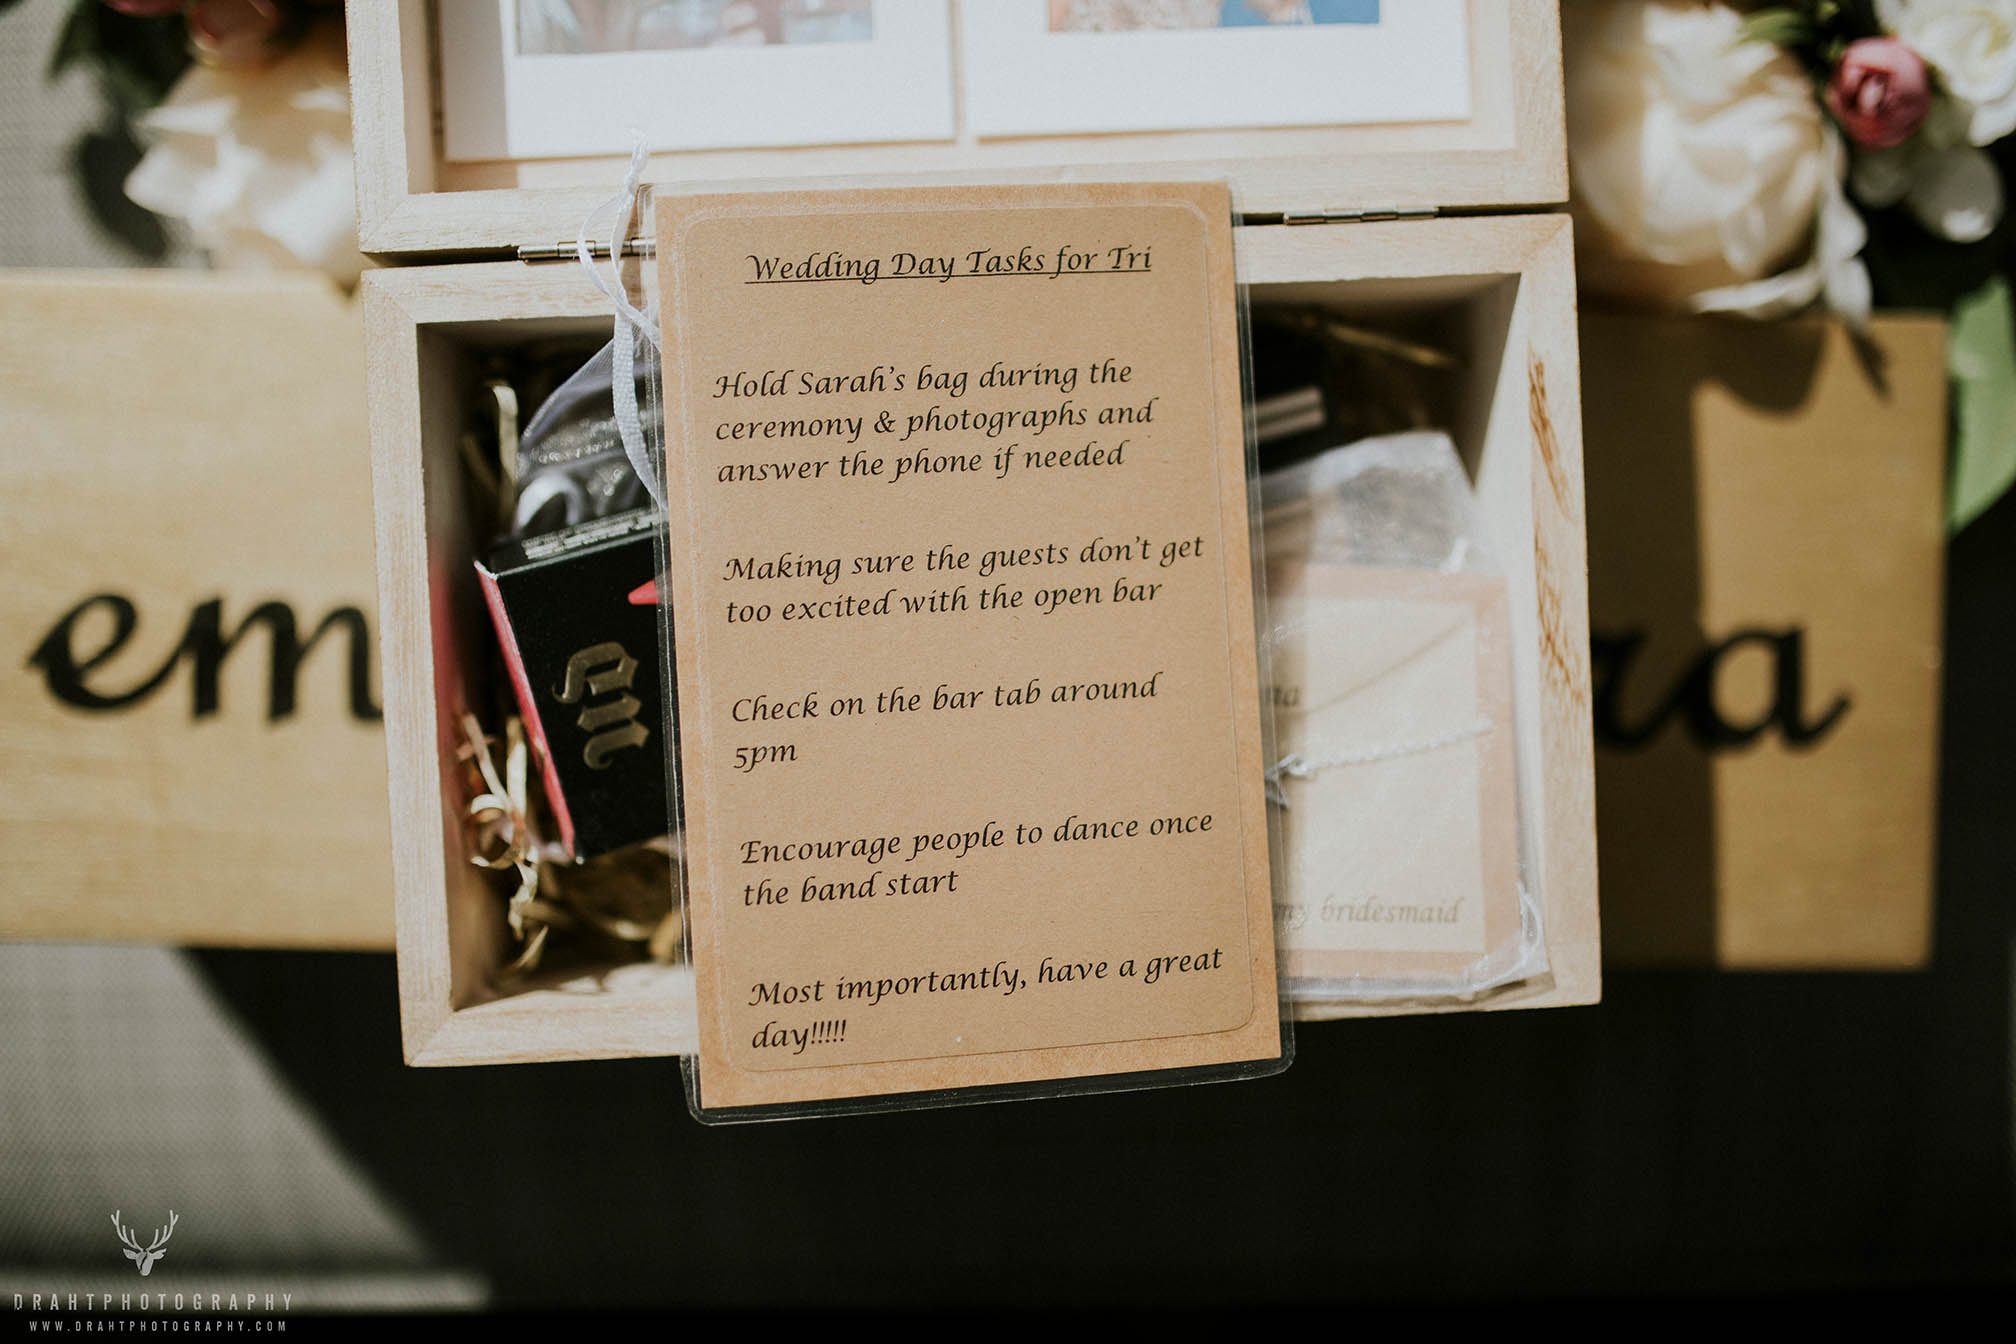 Wedding Day Tasks for Tri
Hold Sarah's bag during the
ceremony & photographs and
answer the phone if needed
Making sure the guests don't get
too excited with the open bar
Check on the bar tab around
5pm
Encourage people to dance once
the band start
Most importantly, have a great
day!!!!!
em
ra
my bridesmaid
DRAHTPHOTOGRAPHY
WWW.DRAHTPHOTOGRAPHY.COM